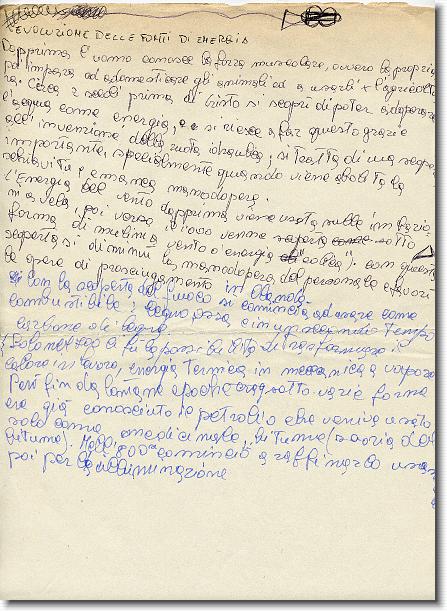 EVOLUZIONE DELLE FONTI DI ENERGIA
Dapprima l'uomo conosce la forza muscolare, ovvero la propria
poi impara ad addomesticare gli animali ed a usarli x l'agricoltu
ra. Circa 2 secoli prima di Cristo si scoprì di poter adoperare
l'acqua come energia, e si riesce a far questo grazie
all'invenzione della ruota idraulica; si tratta di una scoperta
importante, specialmente quando viene abolita la
schiavitù e manca manodopera.
L'Energia del vento dapprima viene usata sulle imbarca
a vela, poi verso il 1000 venne sotto
forma di mulino a vento o energia "eolica": con questa
scoperta si diminuì la manodopera del personale e favorì
le opere di prosciugamento in Olanda
con la scoperta del fuoco si cominciò ad usare come
combustibile; legno, e in un secondo tempo
carbone
Solo nel 700 ci fu la possibilità di trasformare il
calore in lavoro, energia termica in meccanica a vapore
Però fin da lontane epoche e sotto varie forme
era già conosciuto il petrolio che veniva usato
solo come medicinale, bitume
bitume). Nell'800 cominciò a raffinarlo
poi per l'illuminazione